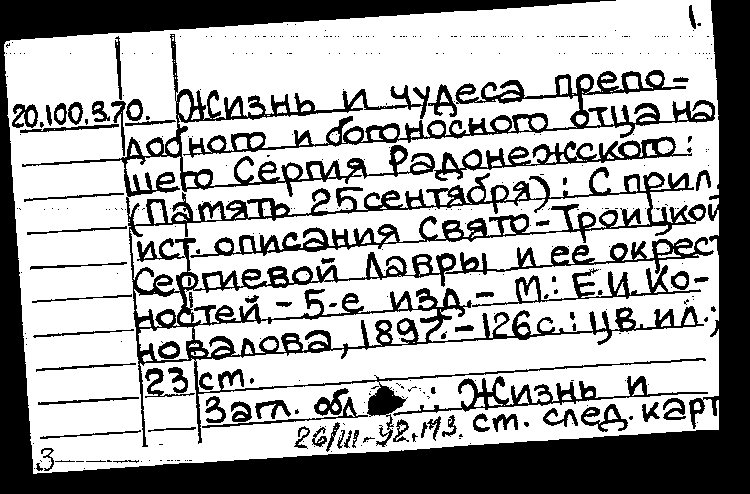 1.
20.100.3.70. Жизнь и чудеса препо=
добного и богоносного отца на
шего Сергия Радонежского:
(Память 25 сентября): С прил.
ист. описания Свято-Троицкой
Сергиевой Лавры и ее окрест
ностей. - 5-е изд. - М.: Е.И. Ко-
новалова, 1897. - 126 с.: цв. ил.;
23 ст.
Загл. обл .: Жизнь и
26/III-92. ст. след. карт
3